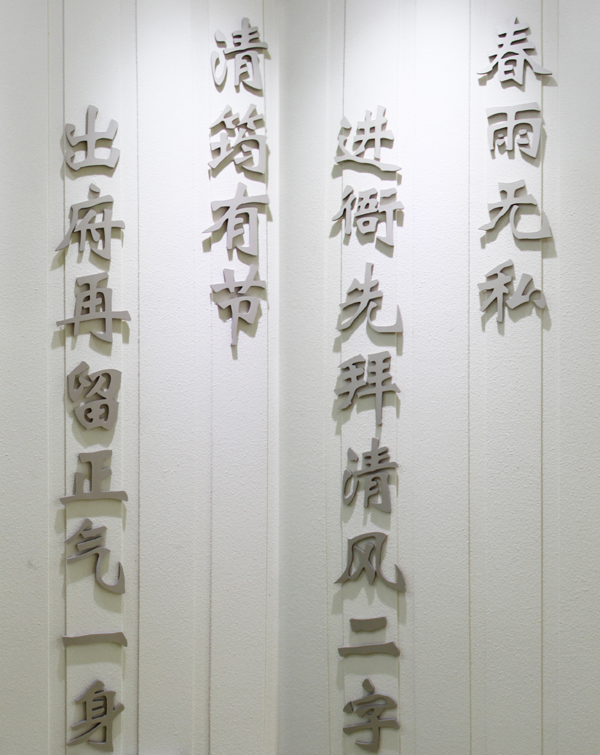 春雨无私
进衙先拜清风二字
清筠有节
出府再留正气一身